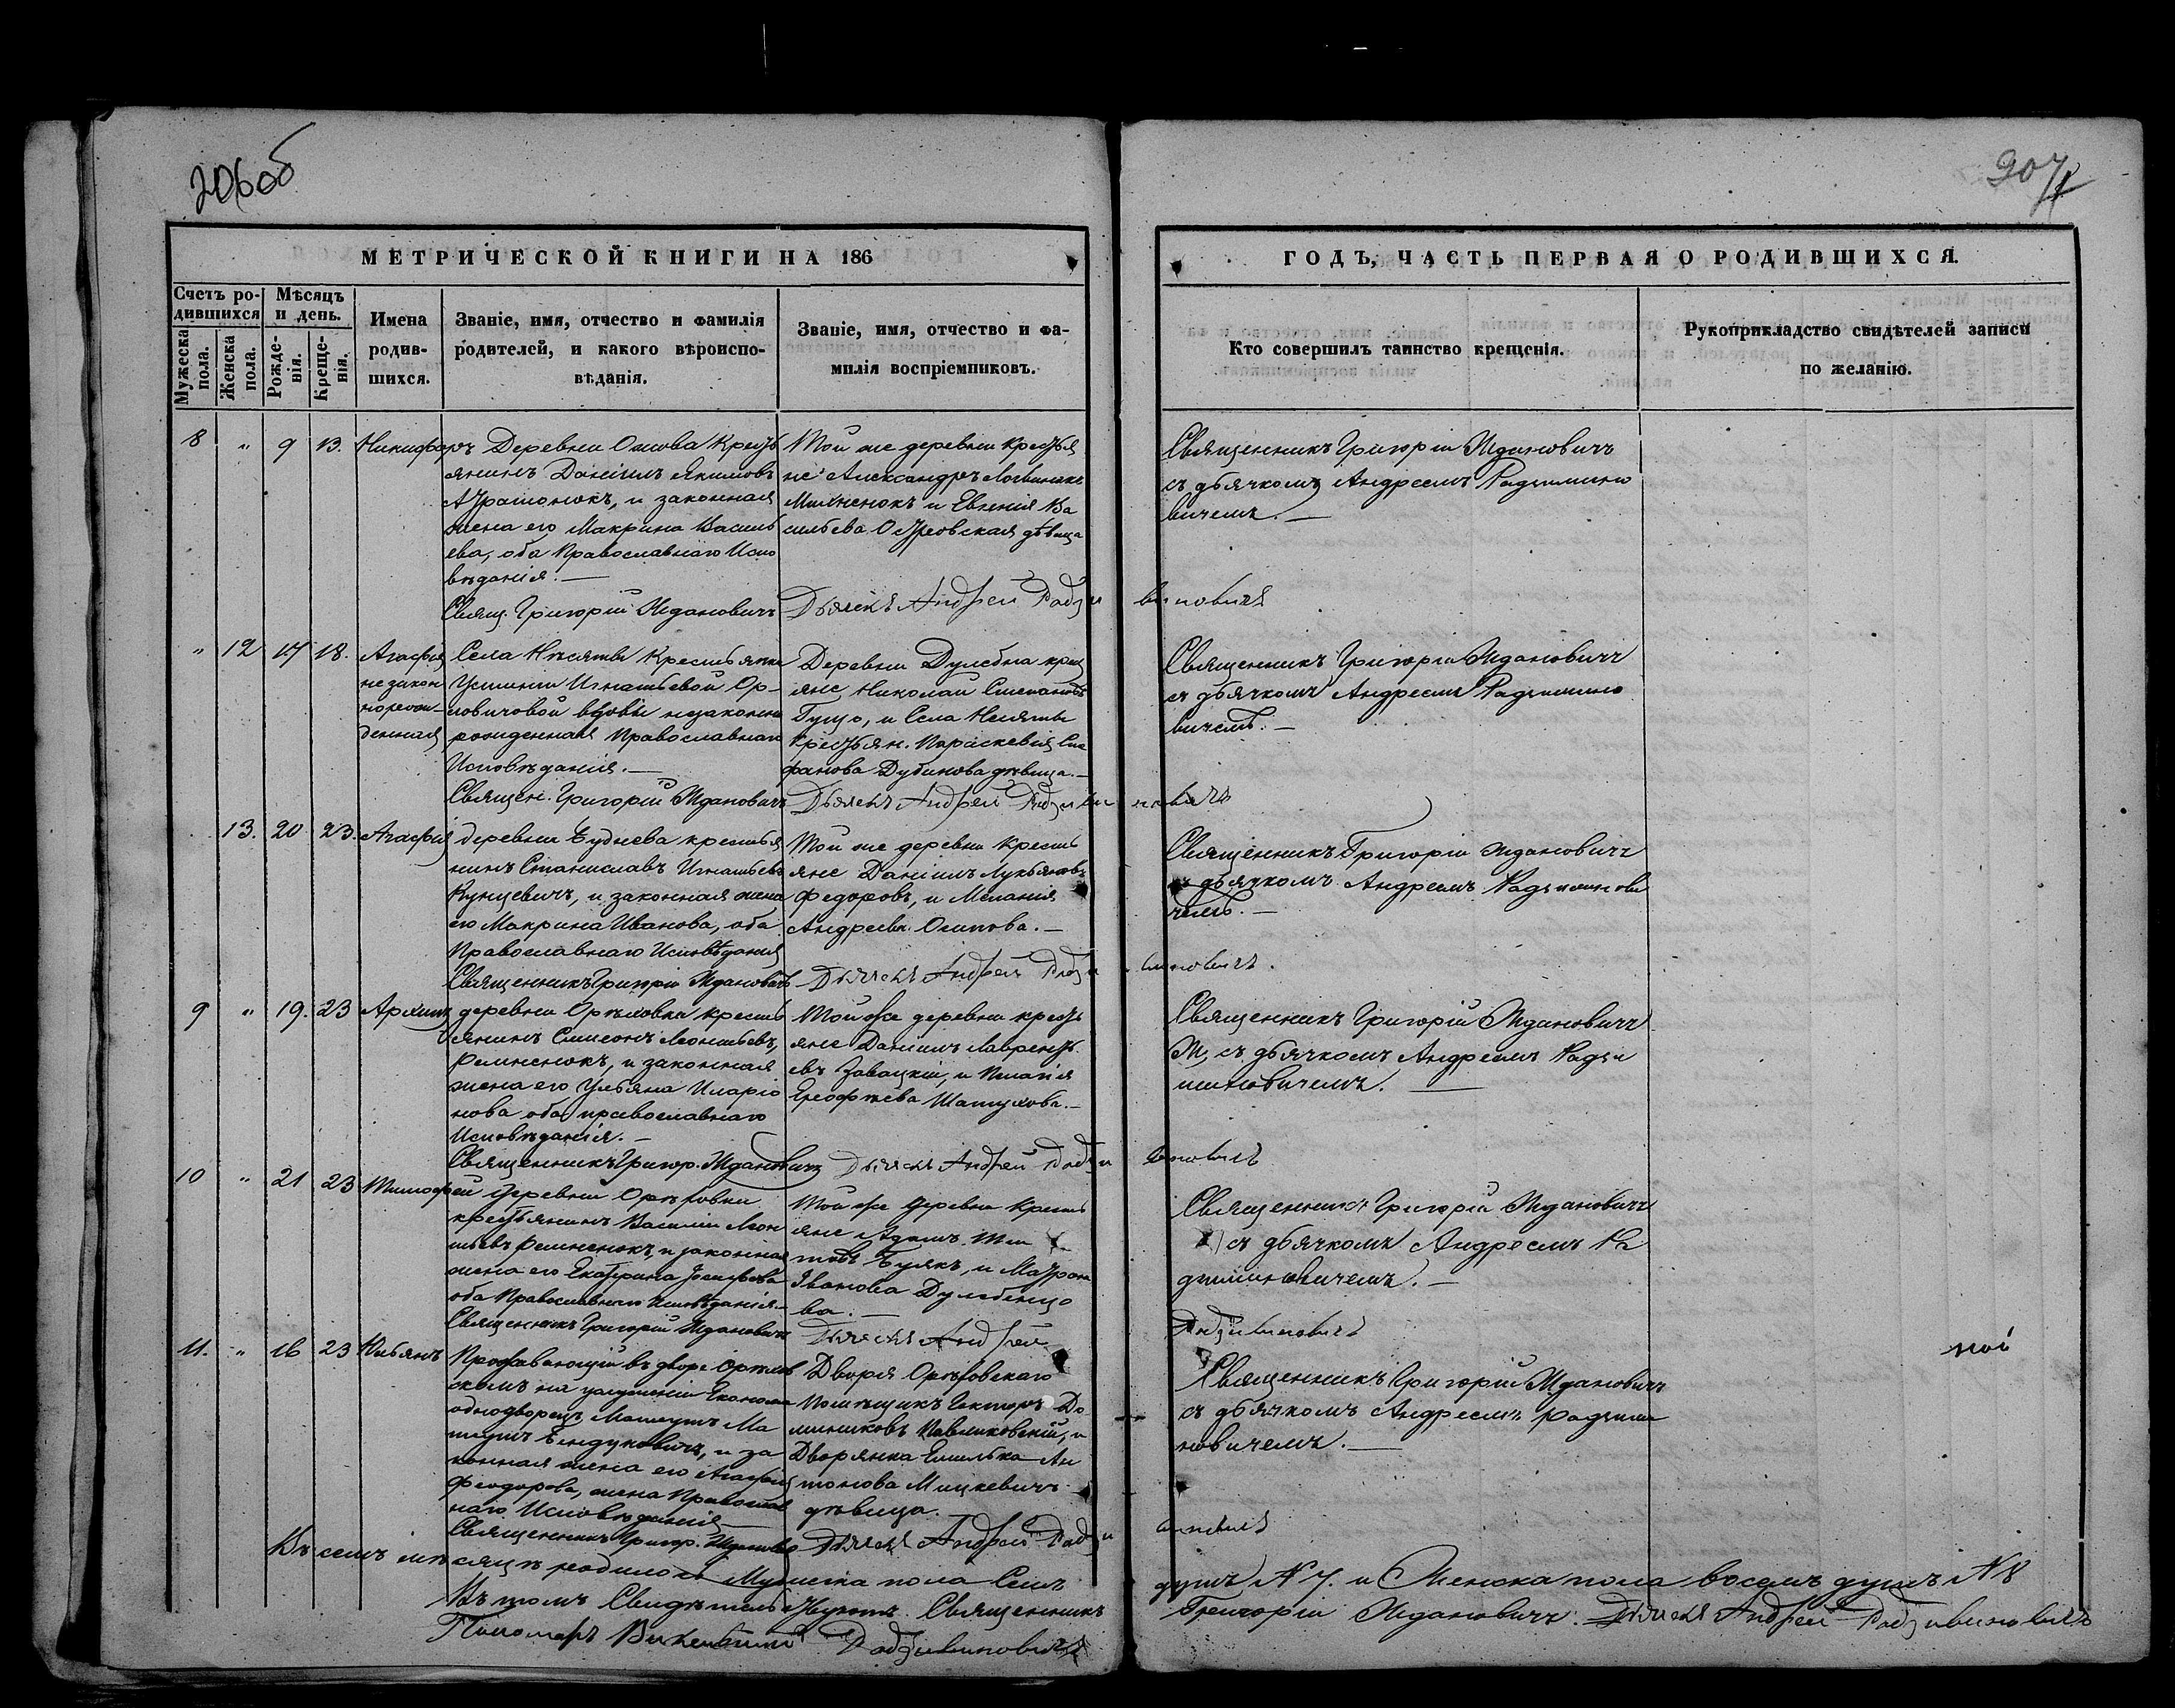 206об
207
МЕТРИЧЕСКОЙ КНИГИ НА 186
ГОДЪ, ЧАСТЬ ПЕРВАЯ О РОДИВШИХСЯ.
Счетъ ро-
дившихся
Мужеска пола.
Женска пола.
Мѣсяцъ
и день.
Рожде-
нія.
Креще-
нія.
Имена
родив-
шихся.
Званіе, имя, отчество и фамилія
родителей, и какого вѣроиспо-
вѣданія.
Званіе, имя, отчество и фа-
милія воспріемниковъ.
Кто совершилъ таинство крещенія.
Рукоприкладство свидѣтелей записи
по желанію.
8 " 9 13. Никифоръ
Деревни Осова Кресть
янинъ Даніилъ Якимовъ
и законная
жена его Макрина Василь
ева, оба Православнаго Испо
вѣданія.—
Свящ. Григорій Ждановичъ
Той же деревни крестья
не Александръ
Михненокъ и Евгенія Ва
сильева дѣвица
Дьячекъ Андрей Радзивиновичъ
Священникъ Григорій Ждановичъ
съ дьячкомъ Андреемъ Радзивино
вичемъ.—
" 12 17 18. Агафія
незакон
норож-
денная
Села Несяты Крестьянки
Устиніи Игнатьевой Ор-
ловичовой вдовы незаконно
рожденная Православнаго
Исповѣданія.—
Священ. Григорій Ждановичъ
Деревни Дулебна крест
яне, Николай Степановъ
и Села Несяты
крестьян. Параскевія Сте
фанова Дубинова дѣвица.—
Дьячекъ Андрей Радзивиновичъ
Священникъ Григорій Ждановичъ
съ дьячкомъ Андреемъ Радзивино
вичемъ.—
13. 20 23. Агафія
деревни Буднева крестья
нинъ Станиславъ Игнатьевъ
Кунцевичъ, и законная жена
его Макрина Иванова, оба
Православнаго Исповѣданія
Священникъ Григорій Ждановичъ
Той же деревни Кресть
яне Даніилъ Лукьяновъ
Федоровъ, и Меланія
Андреева Осипова.—
Дьячекъ Андрей Радзивиновичъ.
Священникъ Григорій Ждановичъ
съ дьячкомъ Андреемъ Радзивинови
чемъ.—
9 " 19. 23 Архипъ
деревни Орѣховки кресть
янинъ Симеонъ Леонтьевъ,
и законная
жена его Ульяна Иларіо
нова оба православнаго
Исповѣданія.—
Священникъ Григор. Ждановичъ
Той же деревни кресть
яне Даніилъ Лавренть
евъ Завацкій, и Пелагія
Ерофѣева Шатухова.—
Дьячекъ Андрей Радзивиновичъ
Священникъ Григорій Ждановичъ
съ дьячкомъ Андреемъ Радзи
виновичемъ.—
10 " 21 23 Тимофей
Деревни Орѣховки
крестьянинъ Василій Леон
тьевъ и законная
жена его Екатерина
оба Православнаго Исповѣданія—
Священникъ Григорій Ждановичъ
Той же деревни Кресть
яне Адамъ
Бурякъ, и Матрона
Іванова
ва.—
Дьячекъ Андрей
Радзивиновичъ
Священникъ Григорій Ждановичъ
съ дьячкомъ Андреемъ Ра
дзивиновичемъ.—
11. " 16 23 Юльянъ
Проживающій въ дворѣ Орѣхов
скомъ на Економа
однодворецъ Ма
и за
конная жена его Агафія
Феодорова, жена Православ
наго Исповѣданія—
Священникъ Григор. Ждановичъ
Двора Орѣховскаго
Помѣщикъ Гекторъ До
миниковъ Павликовскій, и
Дворянка Емилька Ан
тонова Мицкевичъ
дѣвица.
Дьячекъ Андрей Радзивиновичъ
Священникъ Григорій Ждановичъ
съ дьячкомъ Андреемъ Радзиви
новичемъ.—
Въ семъ мѣсяцѣ родилось Мужеска пола Семъ душъ № 7. и Женска пола восемъ душъ № 8
Въ томъ Свидѣтельствуютъ. Священникъ Григорій Ждановичъ. Дьячекъ Андрей Радзивиновичъ
Пономаръ Викентій Радзивиновичъ